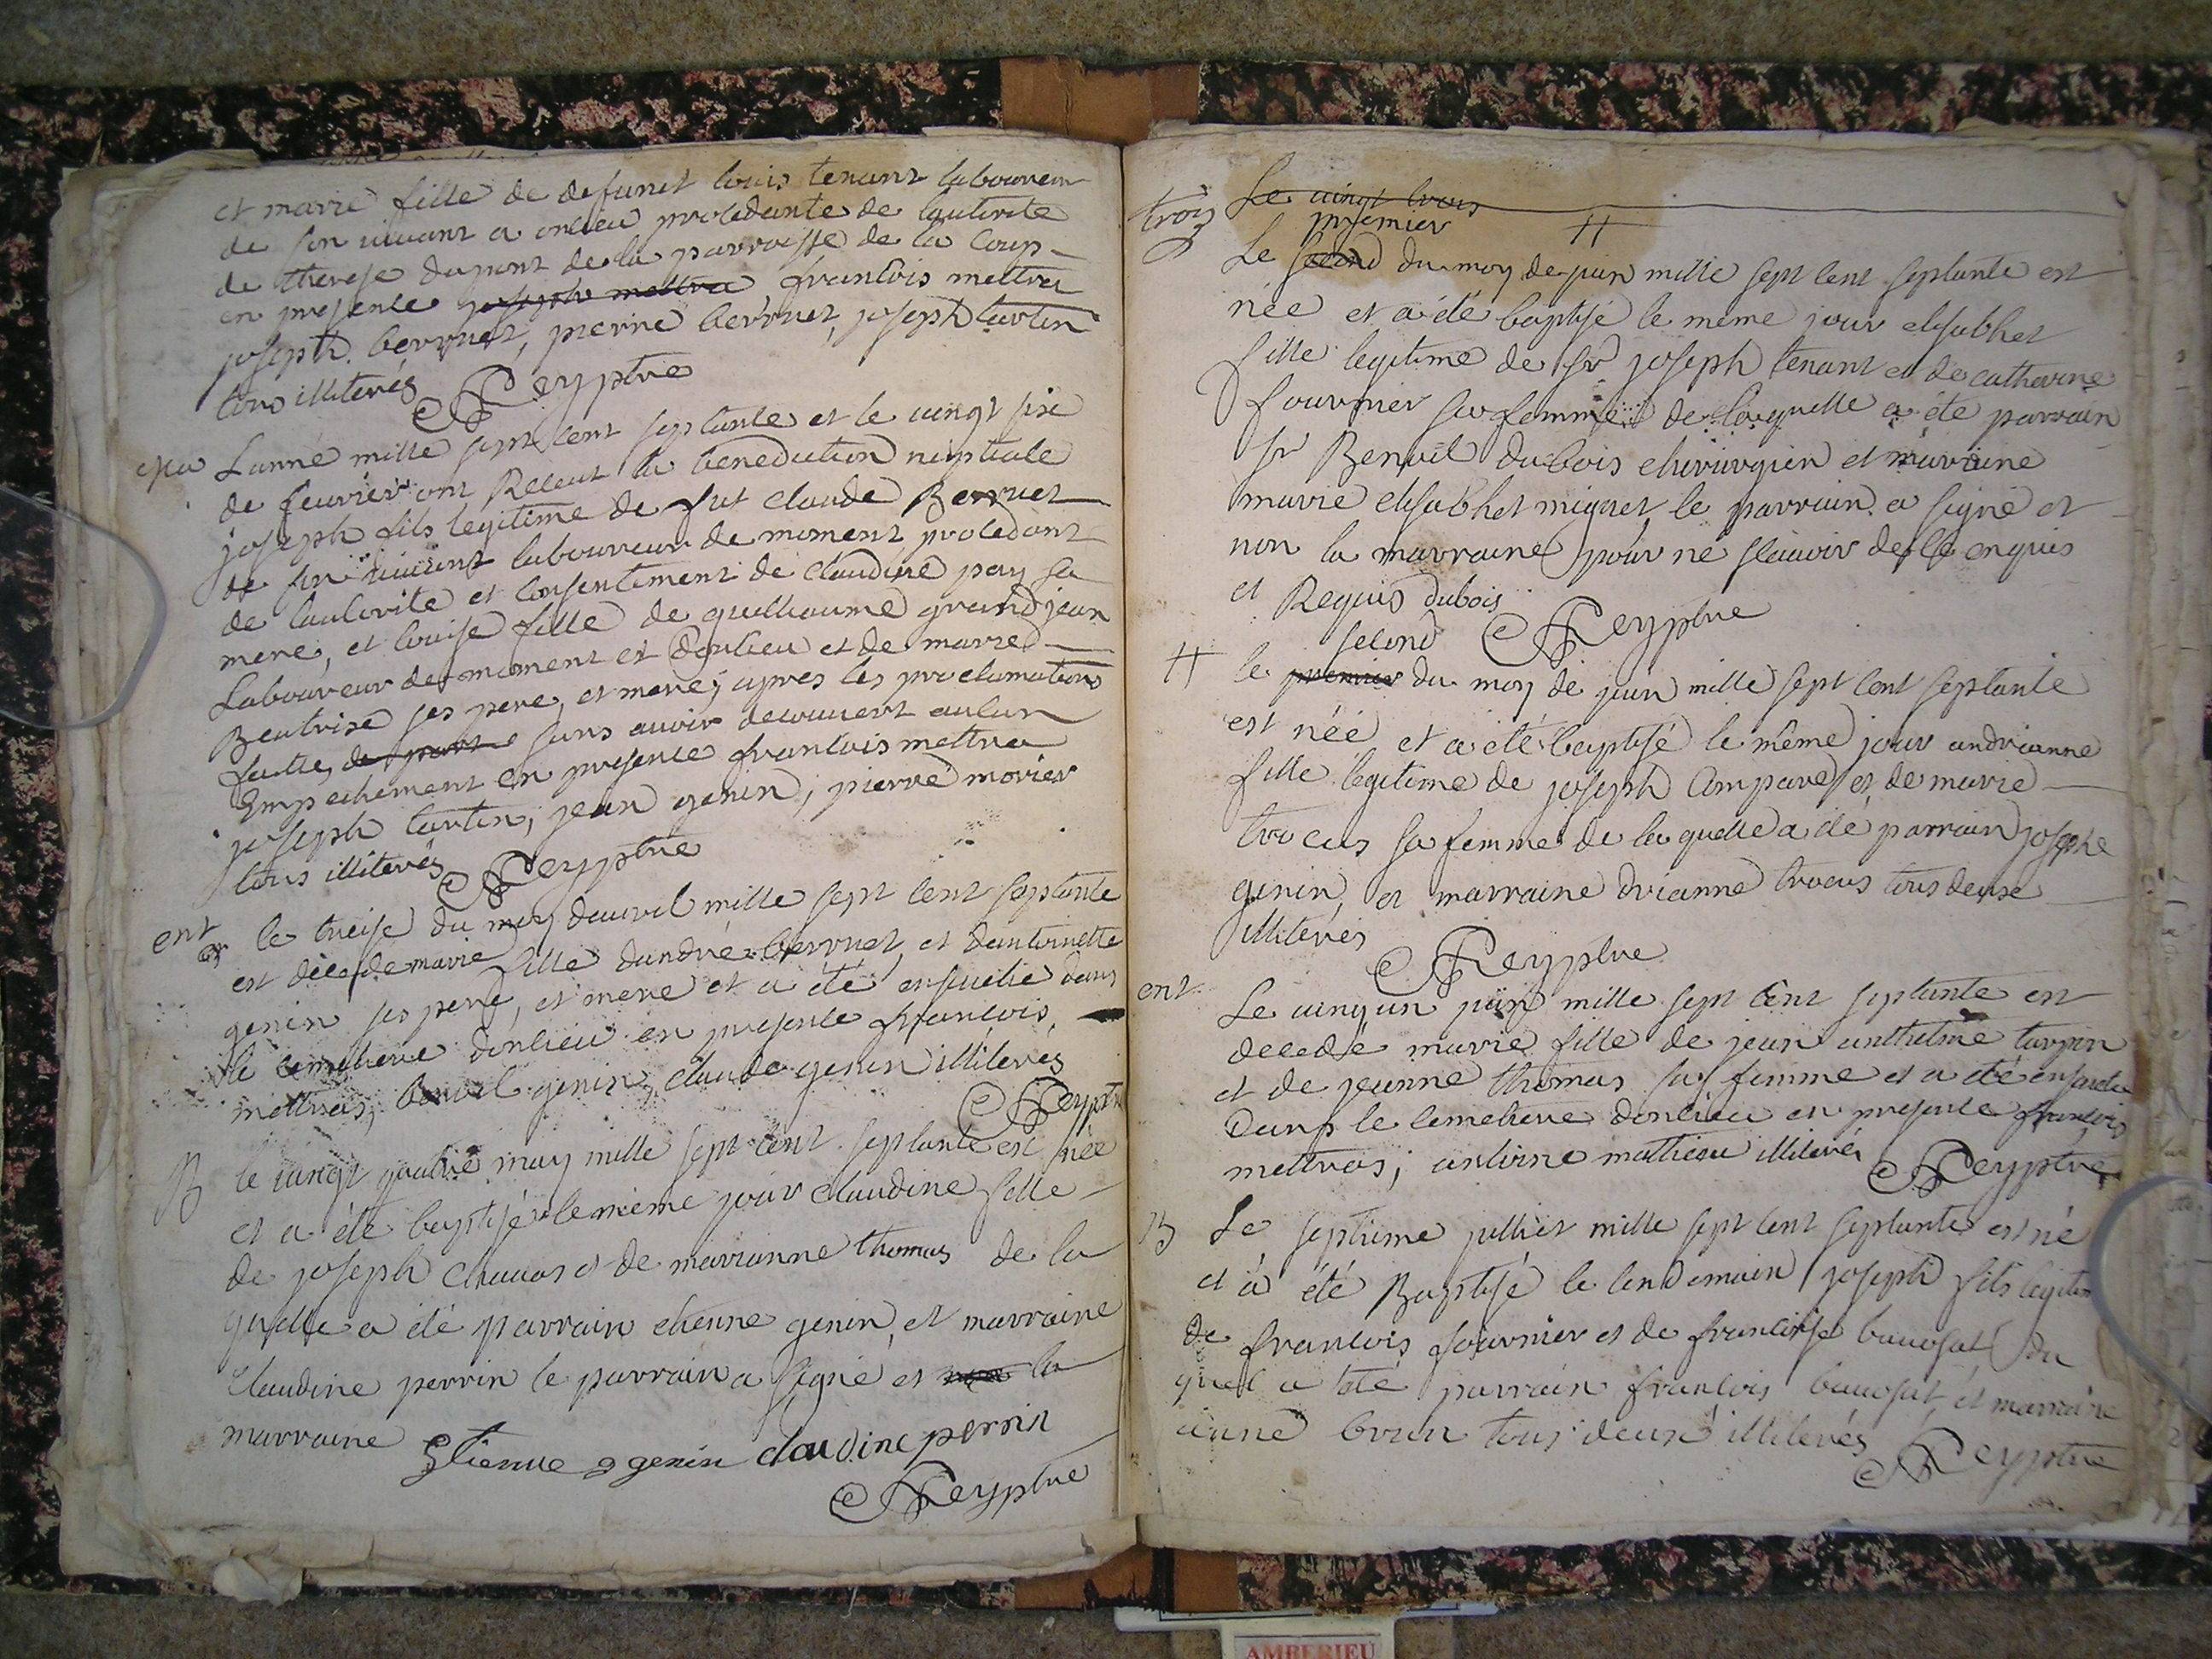 et marie fille de defunct louis tenant laboureur
de son vivant a onlieu procedante de lautorite
de therese dupont de la parroisse de la coup
en presence joseph mettra francois mettra
joseph berruet, pierre berruet, joseph curtin
tous illiterés Reyptre
epu Lanné mille sept cent septante et le vingt six
de feuvrier ont Receut la benediction nuptiale
joseph fils legitime de fut claude Berruet
de son vivant laboureur de moment procedant
de lautorite et consentiment de claudine pey sa
mere, et louise fille de guilliaume grand jean
Laboureur de moment et donlieu et de marie
Beatrise ses pere, et mere, apres les proclamations
faitte, de part sans avoir decouvert aulcun
Empechement en presence francois mettra
joseph curtin, jean genin, pierre morier
tous illiterés Reyptre
ent le treise du moy davril mille sept cent septante
est decede marie fille dandré berruet, et dantoinette
genin ses pere, et mere et a été ensuelie dans
le cemettiere donlieu en presence francois
mettras, benoit genin, claude genin illiteres
Reyptre
B le vingt quatre may mille sept cent septante est née
et a été baptisé le meme jour claudine fille
de joseph chavas et de marianne thomas de la
quelle a été parrain etienne genin, et marraine
Claudine perrin le parrain a signé et non la
marraine
Etienne genin claudine perrin
Reyptre
Le vingt trois
troiz premier #
Le second du moy de juin mille sept cent septante est
née et a été baptisé le meme jour elisabhet
fille legitime de sr joseph tenant et de catherine
fournier sa femme de laquelle a été parrain
sr Benoit dubois chirurgien et maraine
marie elisabhet miguet le parrain a signé et
non la marraine pour ne scavoir de ce enquis
et Requis dubois Reyptre
second
# le premier du moy de juin mille sept cent septante
est née et a été baptisé le même jour andrianne
fille legitime de joseph Compare et de marie
trocus sa femme de la quelle a été parrain josephe
genin, et marraine drianne trocus tous deux
illiterés
Reyptre
ent Le vingun juin mille sept cent septante est
decedé marie fille de jean anthelme turpin
et de jeanne thomas sa femme et a été ensuelie
Dans le cemetiere donlieu en presence francois
mettras, antoine mathieu illiteré Reyptre
B Le septieme julliet mille sept cent septante est né
et a été Baptisé le lendemain joseph fils legitim
de francois fournier et de francoise bavosat du
quel a été parrain francois bavosat, et marraine
anne brun tous deux illiterés Reyptre
AMBERIEU